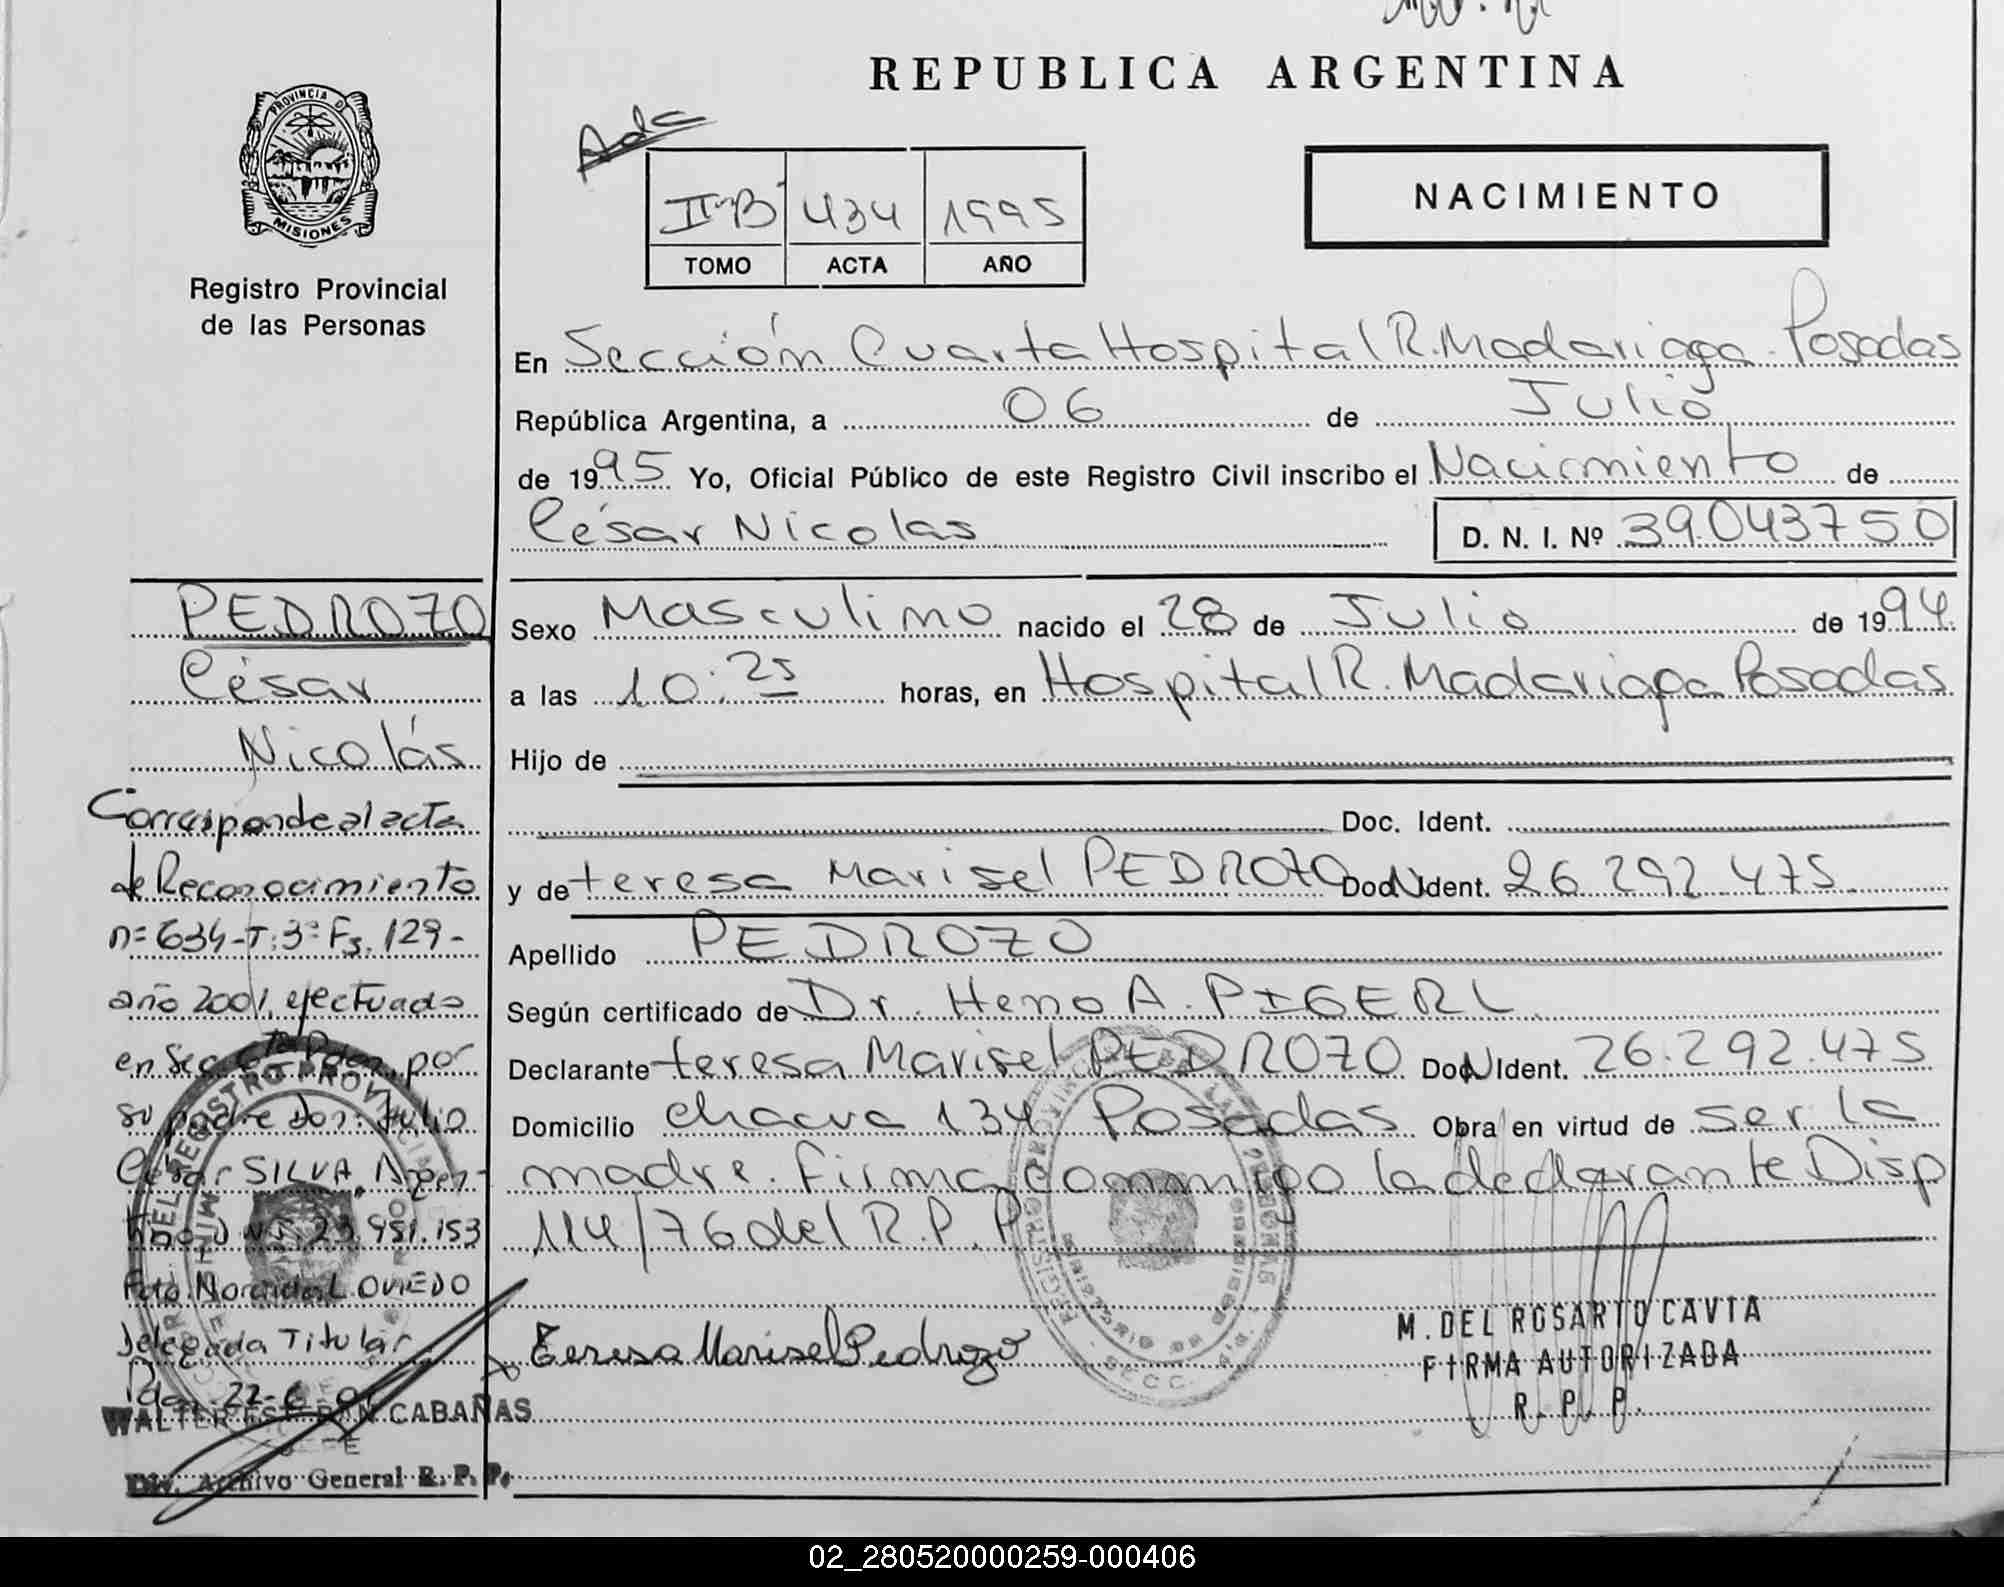 REPUBLICA ARGENTINA
PROVINCIA DE
MISIONES
Registro Provincial
de las Personas
Ada
II-B 434 1995
TOMO ACTA AÑO
NACIMIENTO
En Sección Cuarta Hospital R. Madariaga. Posadas
República Argentina, a 06 de Julio
de 1995 Yo, Oficial Público de este Registro Civil inscribo el Nacimiento de
César Nicolas D. N. I. Nº 39.043750
Sexo Masculino nacido el 28 de Julio de 1994.
a las 10:25 horas, en Hospital R. Madariaga Posadas
Hijo de
Doc. Ident.
y de teresa Marisel PEDROZO Doc N Ident. 26.292.475
Apellido PEDROZO
Según certificado de Dr. Heno A. PIGERL
Declarante teresa Marisel PEDROZO Doc N Ident. 26.292.475
Domicilio chacra 134 Posadas Obra en virtud de ser la
madre. Firma conmigo la declarante Disp
114/76 del R.P.P
Teresa Marisel Pedrozo
M. DEL ROSARIO CAVIA
FIRMA AUTORIZADA
R. P. P.
PEDROZO
César
Nicolás
Corresponde al acta
de Reconocimiento
n= 634-T:3º Fs. 129-
año 2001, ejectuado
en Secc 1ª Pdas, por
su padre don: Julio
César SILVA, Argen-
tino D N I. 23.951.153
Fdo. Norcida L. OVIEDO
Delegada Titular
Pdas, 22-6-01
WALTER ESTEBAN CABAÑAS
JEFE
Div. Archivo General R. P. P.
02_280520000259-000406